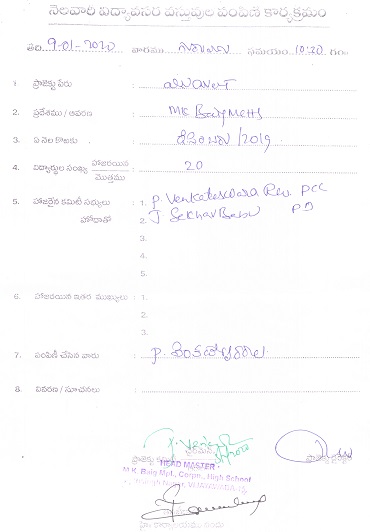 నెలవారి విద్యావసర వస్తువుల పంపిణి కార్యక్రమం
తేది 9-01-2020 వారము గురువారం సమయం 10:20 గం॥
1. ప్రాజెక్టు పేరు
2. ప్రదేశము / ఆవరణ MK Baig MCHS
3. ఏ నెల కొరకు డిసెంబరు/2019
4. విద్యార్థుల సంఖ్య హాజరయిన 20
మొత్తము
5. హాజరైన కమిటీ సభ్యులు 1. P. Venkateswara Rao PCC
హోదాతో 2. J Sekhar Babu PD
3.
4.
5.
6. హాజరయిన ఇతర ముఖ్యులు : 1.
2.
3.
7. పంపిణీ చేసిన వారు P. వెంకటేశ్వరరావు
8. వివరణ / సూచనలు
HEAD MASTER
M.K. Baig Mpl., Corpn., High School